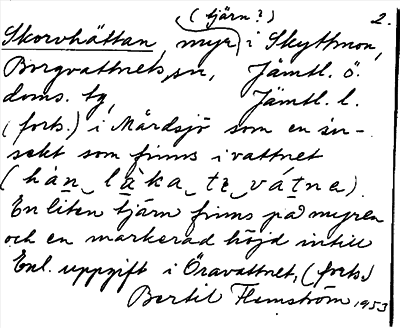 (tjärn?) 2.
Skorvhättan, myr, i Skyttmon,
Borgvattnets sn, Jämtl. ö.
doms. tg, Jämtl. l.
(forts.) i Mårdsjö som en in-
sekt som finns i vattnet
(hàn låka tę vátnę).
En liten tjärn finns på myren
och en markerad höjd intill
Enl. uppgift i Öravattnet, (forts.)
Bertil Flemström 1953